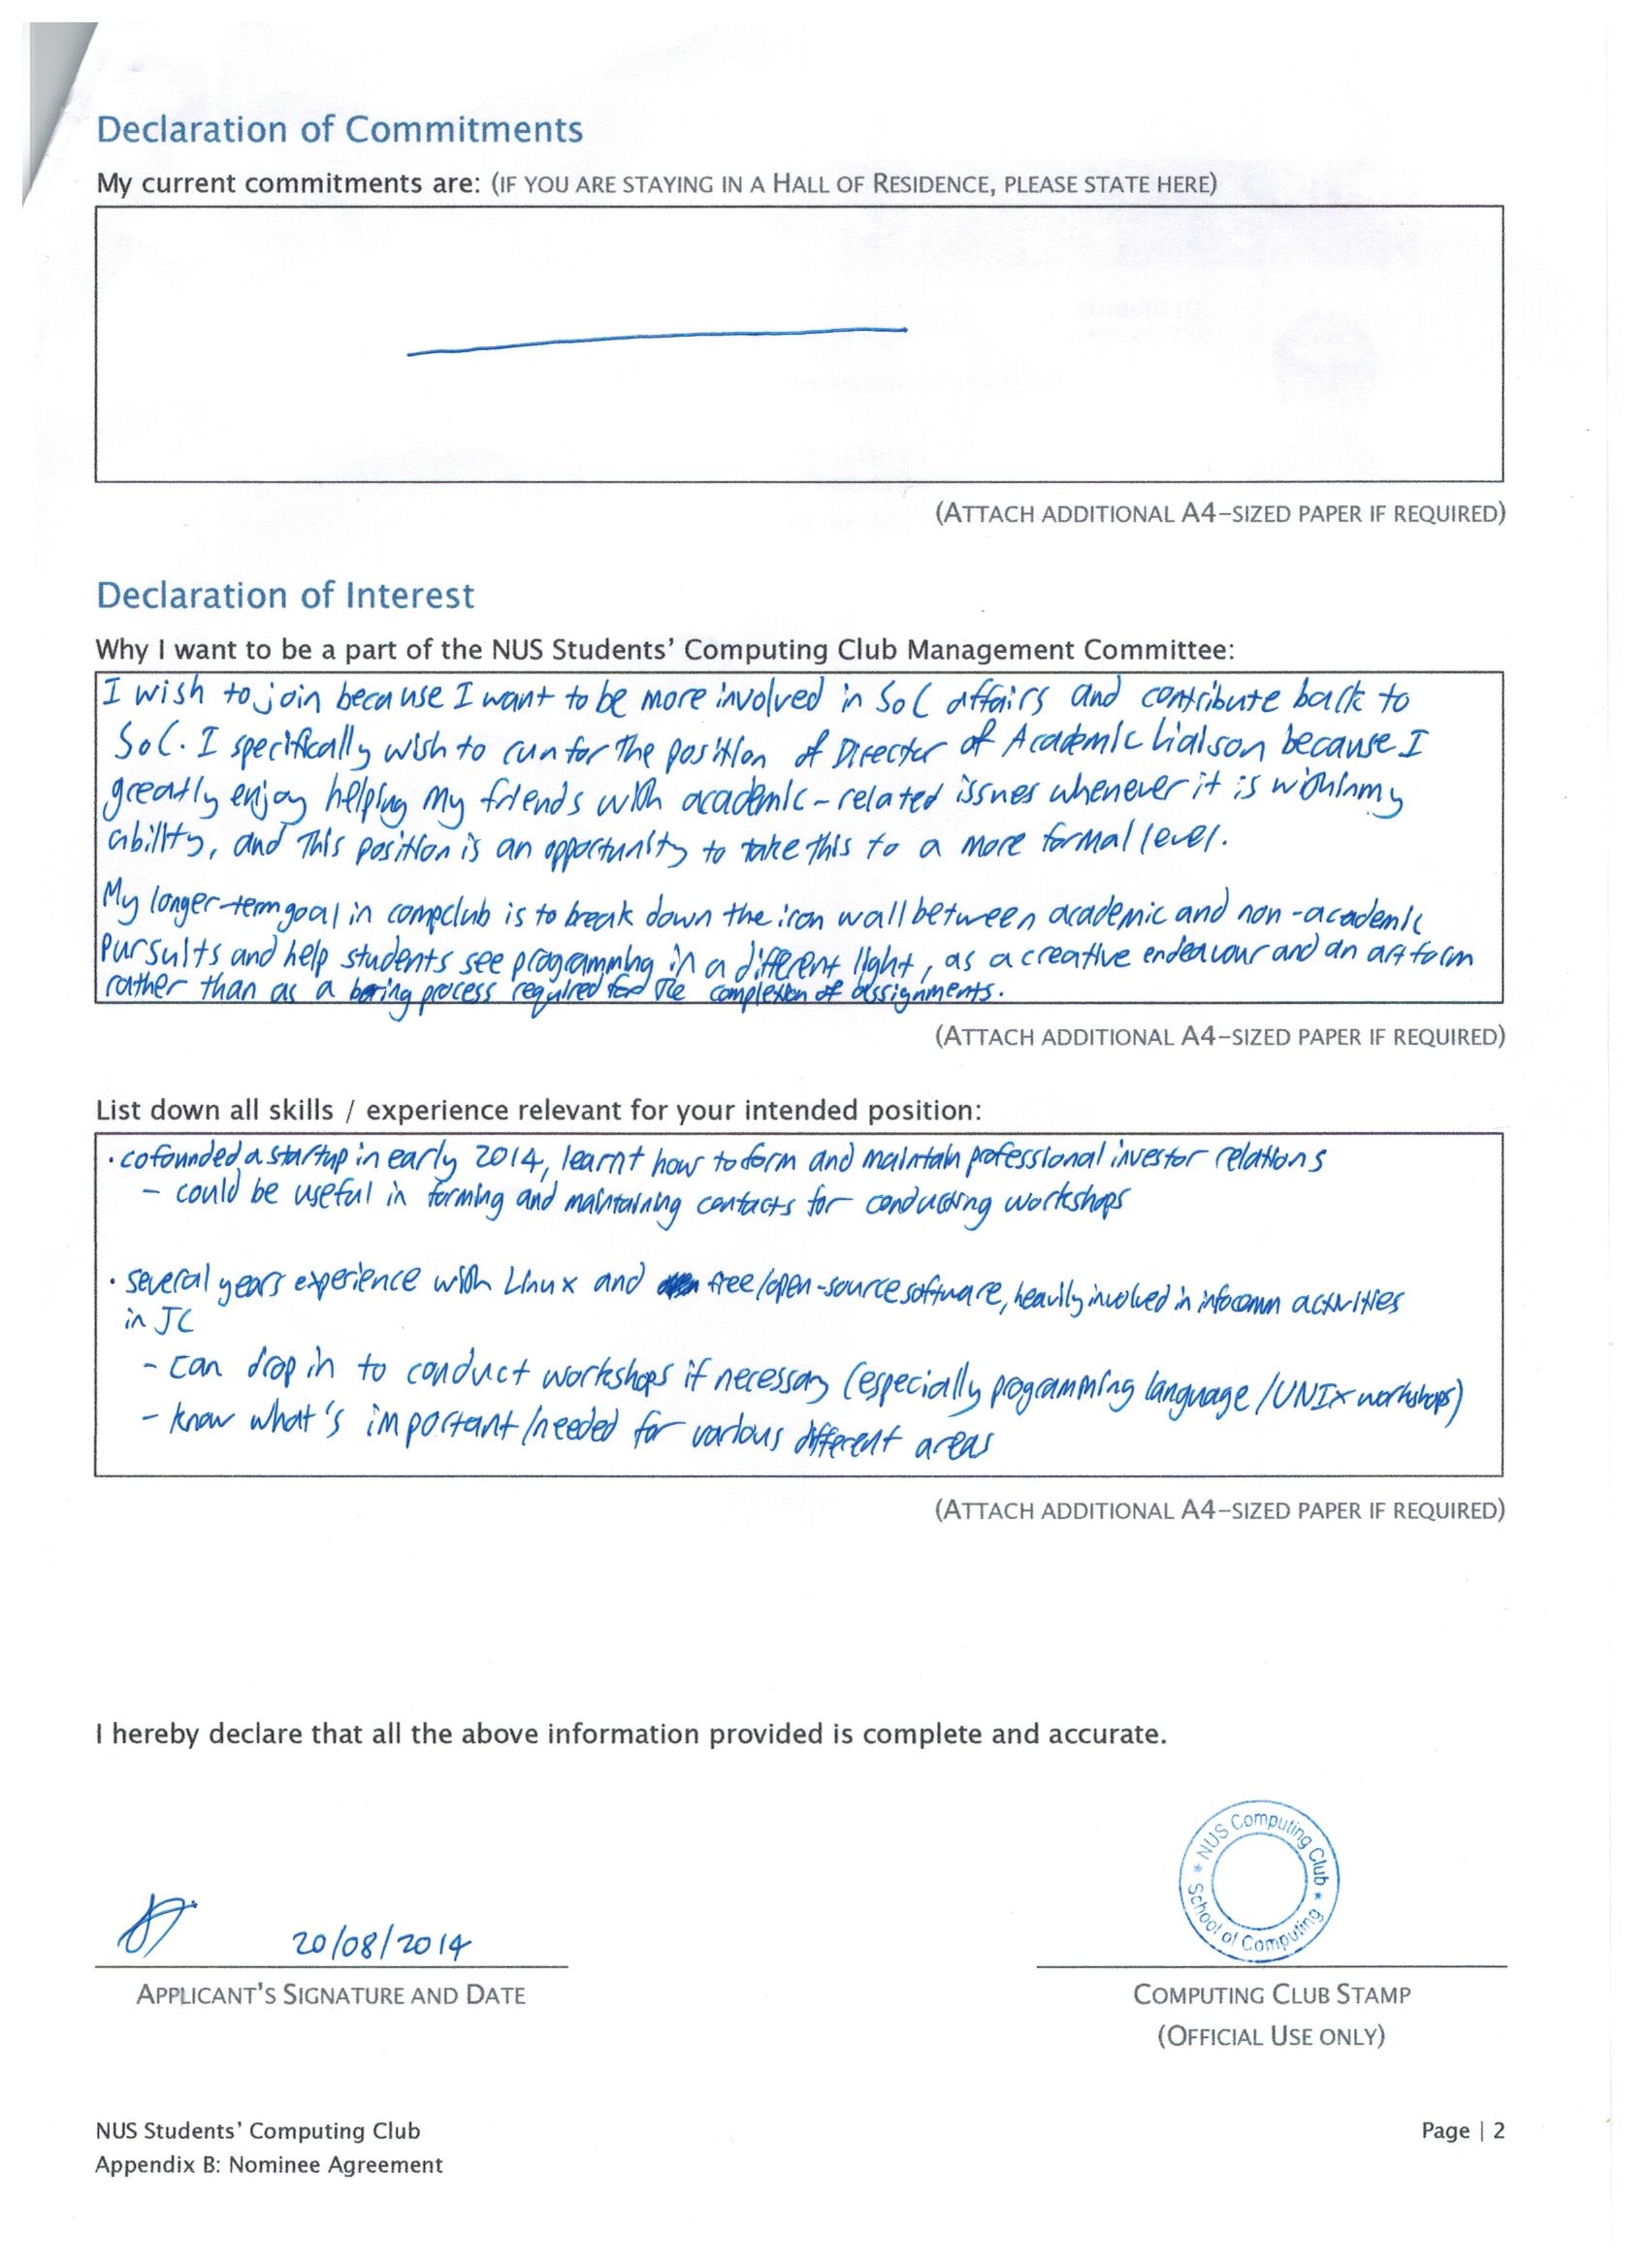 Declaration of Commitments
My current commitments are: (IF YOU ARE STAYING IN A HALL OF RESIDENCE, PLEASE STATE HERE)
(ATTACH ADDITIONAL A4-SIZED PAPER IF REQUIRED)
Declaration of Interest
Why I want to be a part of the NUS Students' Computing Club Management Committee:
I wish to join because I want to be more involved in SoC affairs and contribute back to
SoC. I specifically wish to run for the position of Director of Academic Liaison because I
greatly enjoy helping my friends with academic-related issues whenever it is within my
ability, and this position is an opportunity to take this to a more formal level.
My longer-term goal in compclub is to break down the iron wall between academic and non-academic
pursuits and help students see programming in a different light, as a creative endeavour and an art form
rather than as a boring process required for the completion of assignments.
(ATTACH ADDITIONAL A4-SIZED PAPER IF REQUIRED)
List down all skills / experience relevant for your intended position:
· cofounded a startup in early 2014, learnt how to form and maintain professional investor relations
- could be useful in forming and maintaining contacts for conducting workshops
· several years experience with Linux and free/open-source software, heavily involved in infocomm activities
in JC
- can drop in to conduct workshops if necessary (especially programming language/UNIX workshops)
- know what's important/needed for various different areas
(ATTACH ADDITIONAL A4-SIZED PAPER IF REQUIRED)
I hereby declare that all the above information provided is complete and accurate.
* NUS Computing Club *
School of Computing
20/08/2014
APPLICANT'S SIGNATURE AND DATE
COMPUTING CLUB STAMP
(OFFICIAL USE ONLY)
NUS Students' Computing Club
Page | 2
Appendix B: Nominee Agreement